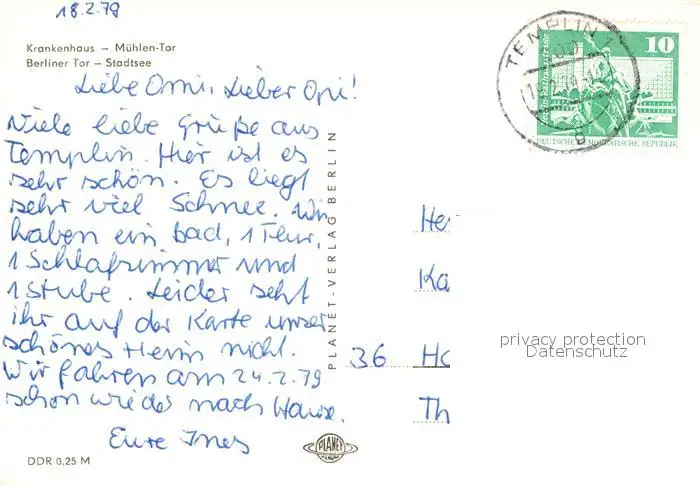 18.2.79
Krankenhaus – Mühlen-Tor
Berliner Tor – Stadtsee
Liebe Omi, Lieber Opi!
Viele liebe Grüße aus
Templin. Hier ist es
sehr schön. Es liegt
sehr viel Schnee. Wir
haben ein Bad, 1 Flur,
1 Schlafzimmer und
1 Stube. Leider seht
ihr auf der Karte unser
schönes Heim nicht.
Wir fahren am 24.2.79
schon wieder nach Hause.
Eure Ines
DDR 0,25 M
PLANET-VERLAG BERLIN
PLANET
TEMPLIN 1
10
DEUTSCHE DEMOKRATISCHE REPUBLIK
He
Ka
36 Ho
Th
privacy protection
Datenschutz